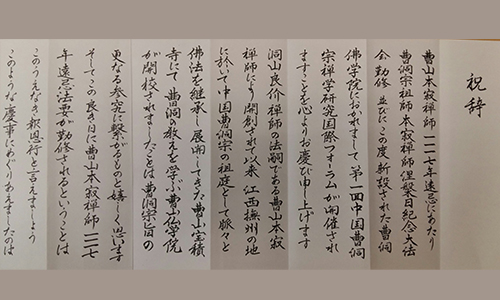 祝辞
曹山本寂禅師一一二七年遠忌にあたり
曹洞宗祖師本寂禅師涅槃日紀念大法
会勤修 並びにこの度新設された曹洞
佛学院におかれまして 第一四中国曹洞
宗禅学研究国際フォーラムが開催され
ますことを心よりお慶び申し上げます
洞山良价禅師の法嗣である曹山本寂
禅師により開創されて以来 江西撫州の地
に於いて中国曹洞宗の祖庭として脈々と
佛法を継承し展開してきた曹山宝積
寺にて 曹洞の教えを学ぶ曹山佛学院
が開校されましたことは 曹洞宗旨の
更なる参究に繋がるものと嬉しく思います
そしてこの良き日に曹山本寂禅師一一二七
年遠忌法要が勤修されるということは
このうえなき報恩行と言えましょう
このような慶事にめぐりあえましたのは